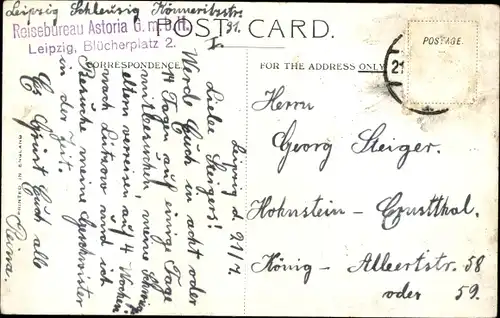 Leipzig Schleusig Könneritzstr.
31.
I.
Reisebüreau Astoria G.m.b.H.
Leipzig, Blücherplatz 2.
POST CARD.
CORRESPONDENCE
FOR THE ADDRESS ONLY
POSTAGE.
21
Leipzig d. 21/7.
Liebe Steigers!
Werde Euch in acht oder
14 Tagen auf einige Tage
mitbesuchen, meine
eltern verreisen auf 4 Wochen
nach Lützow und ich
Besuche meine Geschwister
in der Zeit.
Es Grüst Euch alle
Herrn
Georg Steiger.
Hohnstein - Ernstthal.
König - Albertstr. 58
oder 59.